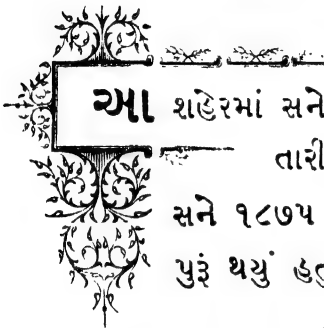 આ શહેરમાં સને
તારી
સને ૧૮૭૫
પુરૂં થયું હતુ